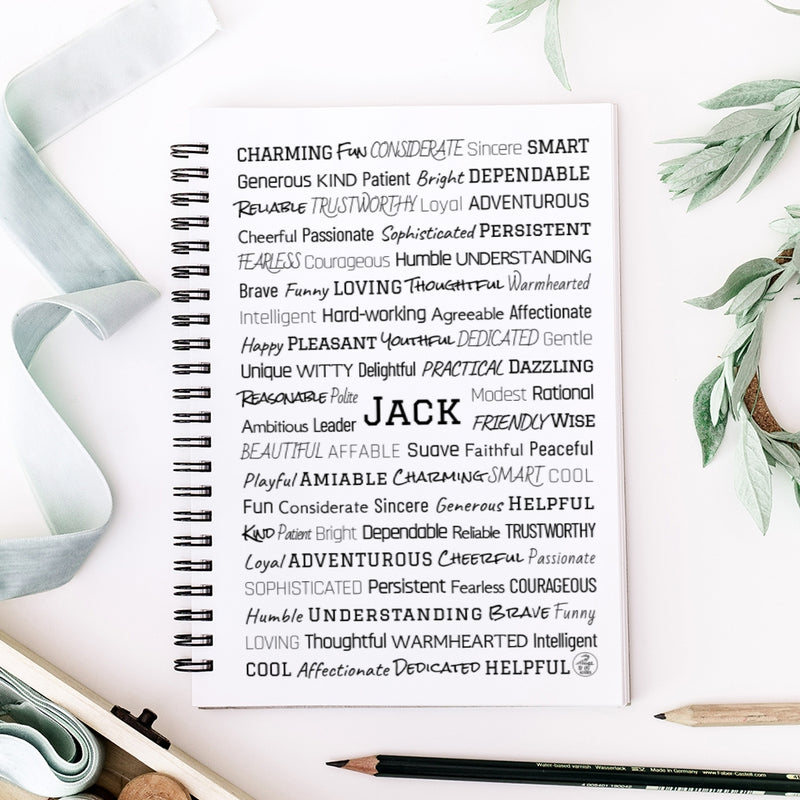 CHARMING FUN CONSIDERATE Sincere SMART
Generous KIND Patient Bright DEPENDABLE
RELIABLE TRUSTWORTHY Loyal ADVENTUROUS
Cheerful Passionate Sophisticated PERSISTENT
FEARLESS Courageous Humble UNDERSTANDING
Brave Funny LOVING THOUGHTFUL Warmhearted
Intelligent Hard-working Agreeable Affectionate
Happy PLEASANT YOUTHFUL DEDICATED Gentle
Unique WITTY Delightful PRACTICAL DAZZLING
REASONABLE Polite Modest Rational
JACK
Ambitious Leader FRIENDLY WISE
BEAUTIFUL AFFABLE Suave Faithful Peaceful
Playful AMIABLE CHARMING SMART COOL
Fun Considerate Sincere Generous HELPFUL
KIND Patient Bright Dependable Reliable TRUSTWORTHY
Loyal ADVENTUROUS CHEERFUL Passionate
SOPHISTICATED Persistent Fearless COURAGEOUS
Humble UNDERSTANDING BRAVE Funny
LOVING Thoughtful WARMHEARTED Intelligent
COOL Affectionate DEDICATED HELPFUL
Water-based varnish Wasserlack Made in Germany www.Faber-Castell.com